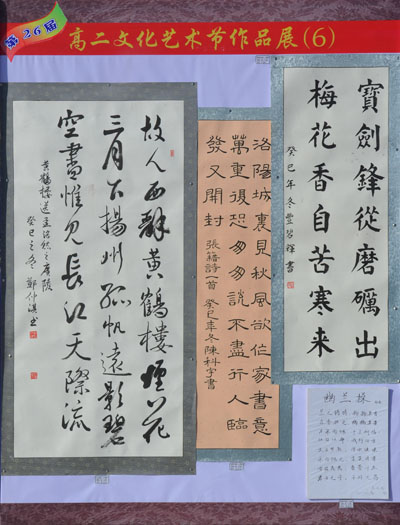 第26届
高二文化艺术节作品展(6)
寶劍鋒從磨礪出
梅花香自苦寒来
癸巳年冬豐碧輝書
洛陽城裏見秋風欲作家書意
萬重復恐匆匆說不盡行人臨
發又開封 張籍詩一首 癸巳年冬陳科宇書
故人西辭黄鶴樓煙花
三月下揚州孤帆遠影碧
空盡惟見長江天際流
黄鶴樓送孟浩然之廣陵
癸巳之冬 鄭仲淇书